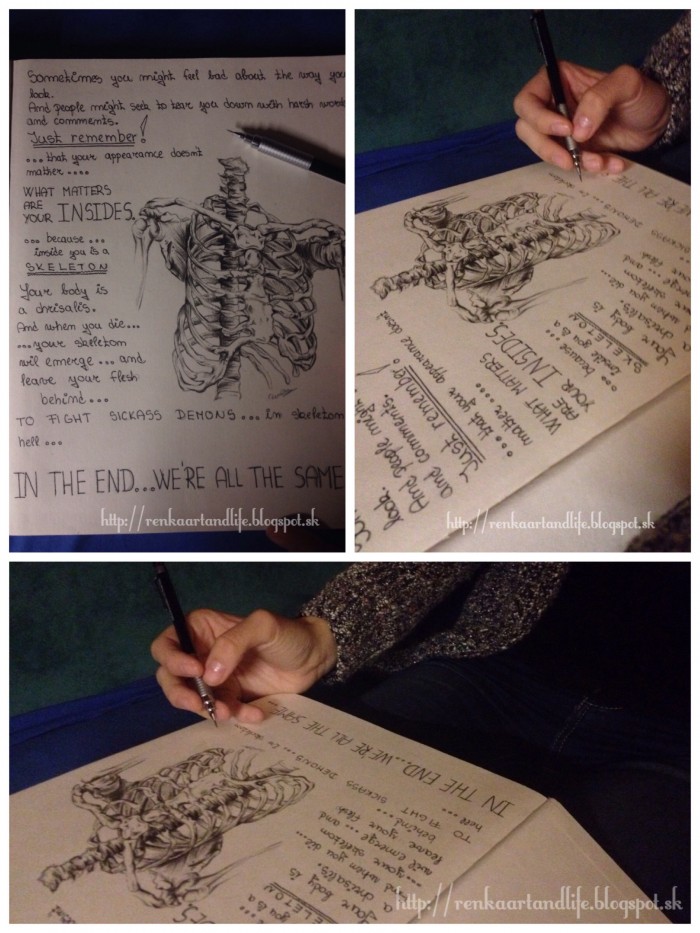 Sometimes you might feel bad about the way you
look.
And people might seek to tear you down with harsh word
and comments.
Just remember!
... that your appearance doesn't
matter ....
WHAT MATTERS
ARE
YOUR INSIDES.
... because ...
inside you is a
SKELETON
Your body is
a chrisalis.
And when you die...
...your skeleton
wil emerge ... and
leave your flesh
behind ...
TO FIGHT SICKASS DEMONS ... in skeleton
hell ...
IN THE END...WE'RE ALL THE SAME
http://renkaartandlife.blogspot.sk
look.
And people might
and comments.
Just remember!
... that your appearance doesn't
matter ....
WHAT MATTERS
ARE
YOUR INSIDES.
... because ...
inside you is a
SKELETON
Your body is
a chrisalis.
http://renkaartandlife.blogspot.sk
INSIDES.
SKELETON
Your body is
a chrisalis.
when you die...
...your skeleton
wil emerge ... and
leave your flesh
behind ...
TO FIGHT SICKASS DEMONS ... in skeleton
hell ...
IN THE END...WE'RE ALL THE SAME...
http://renkaartandlife.blogspot.sk